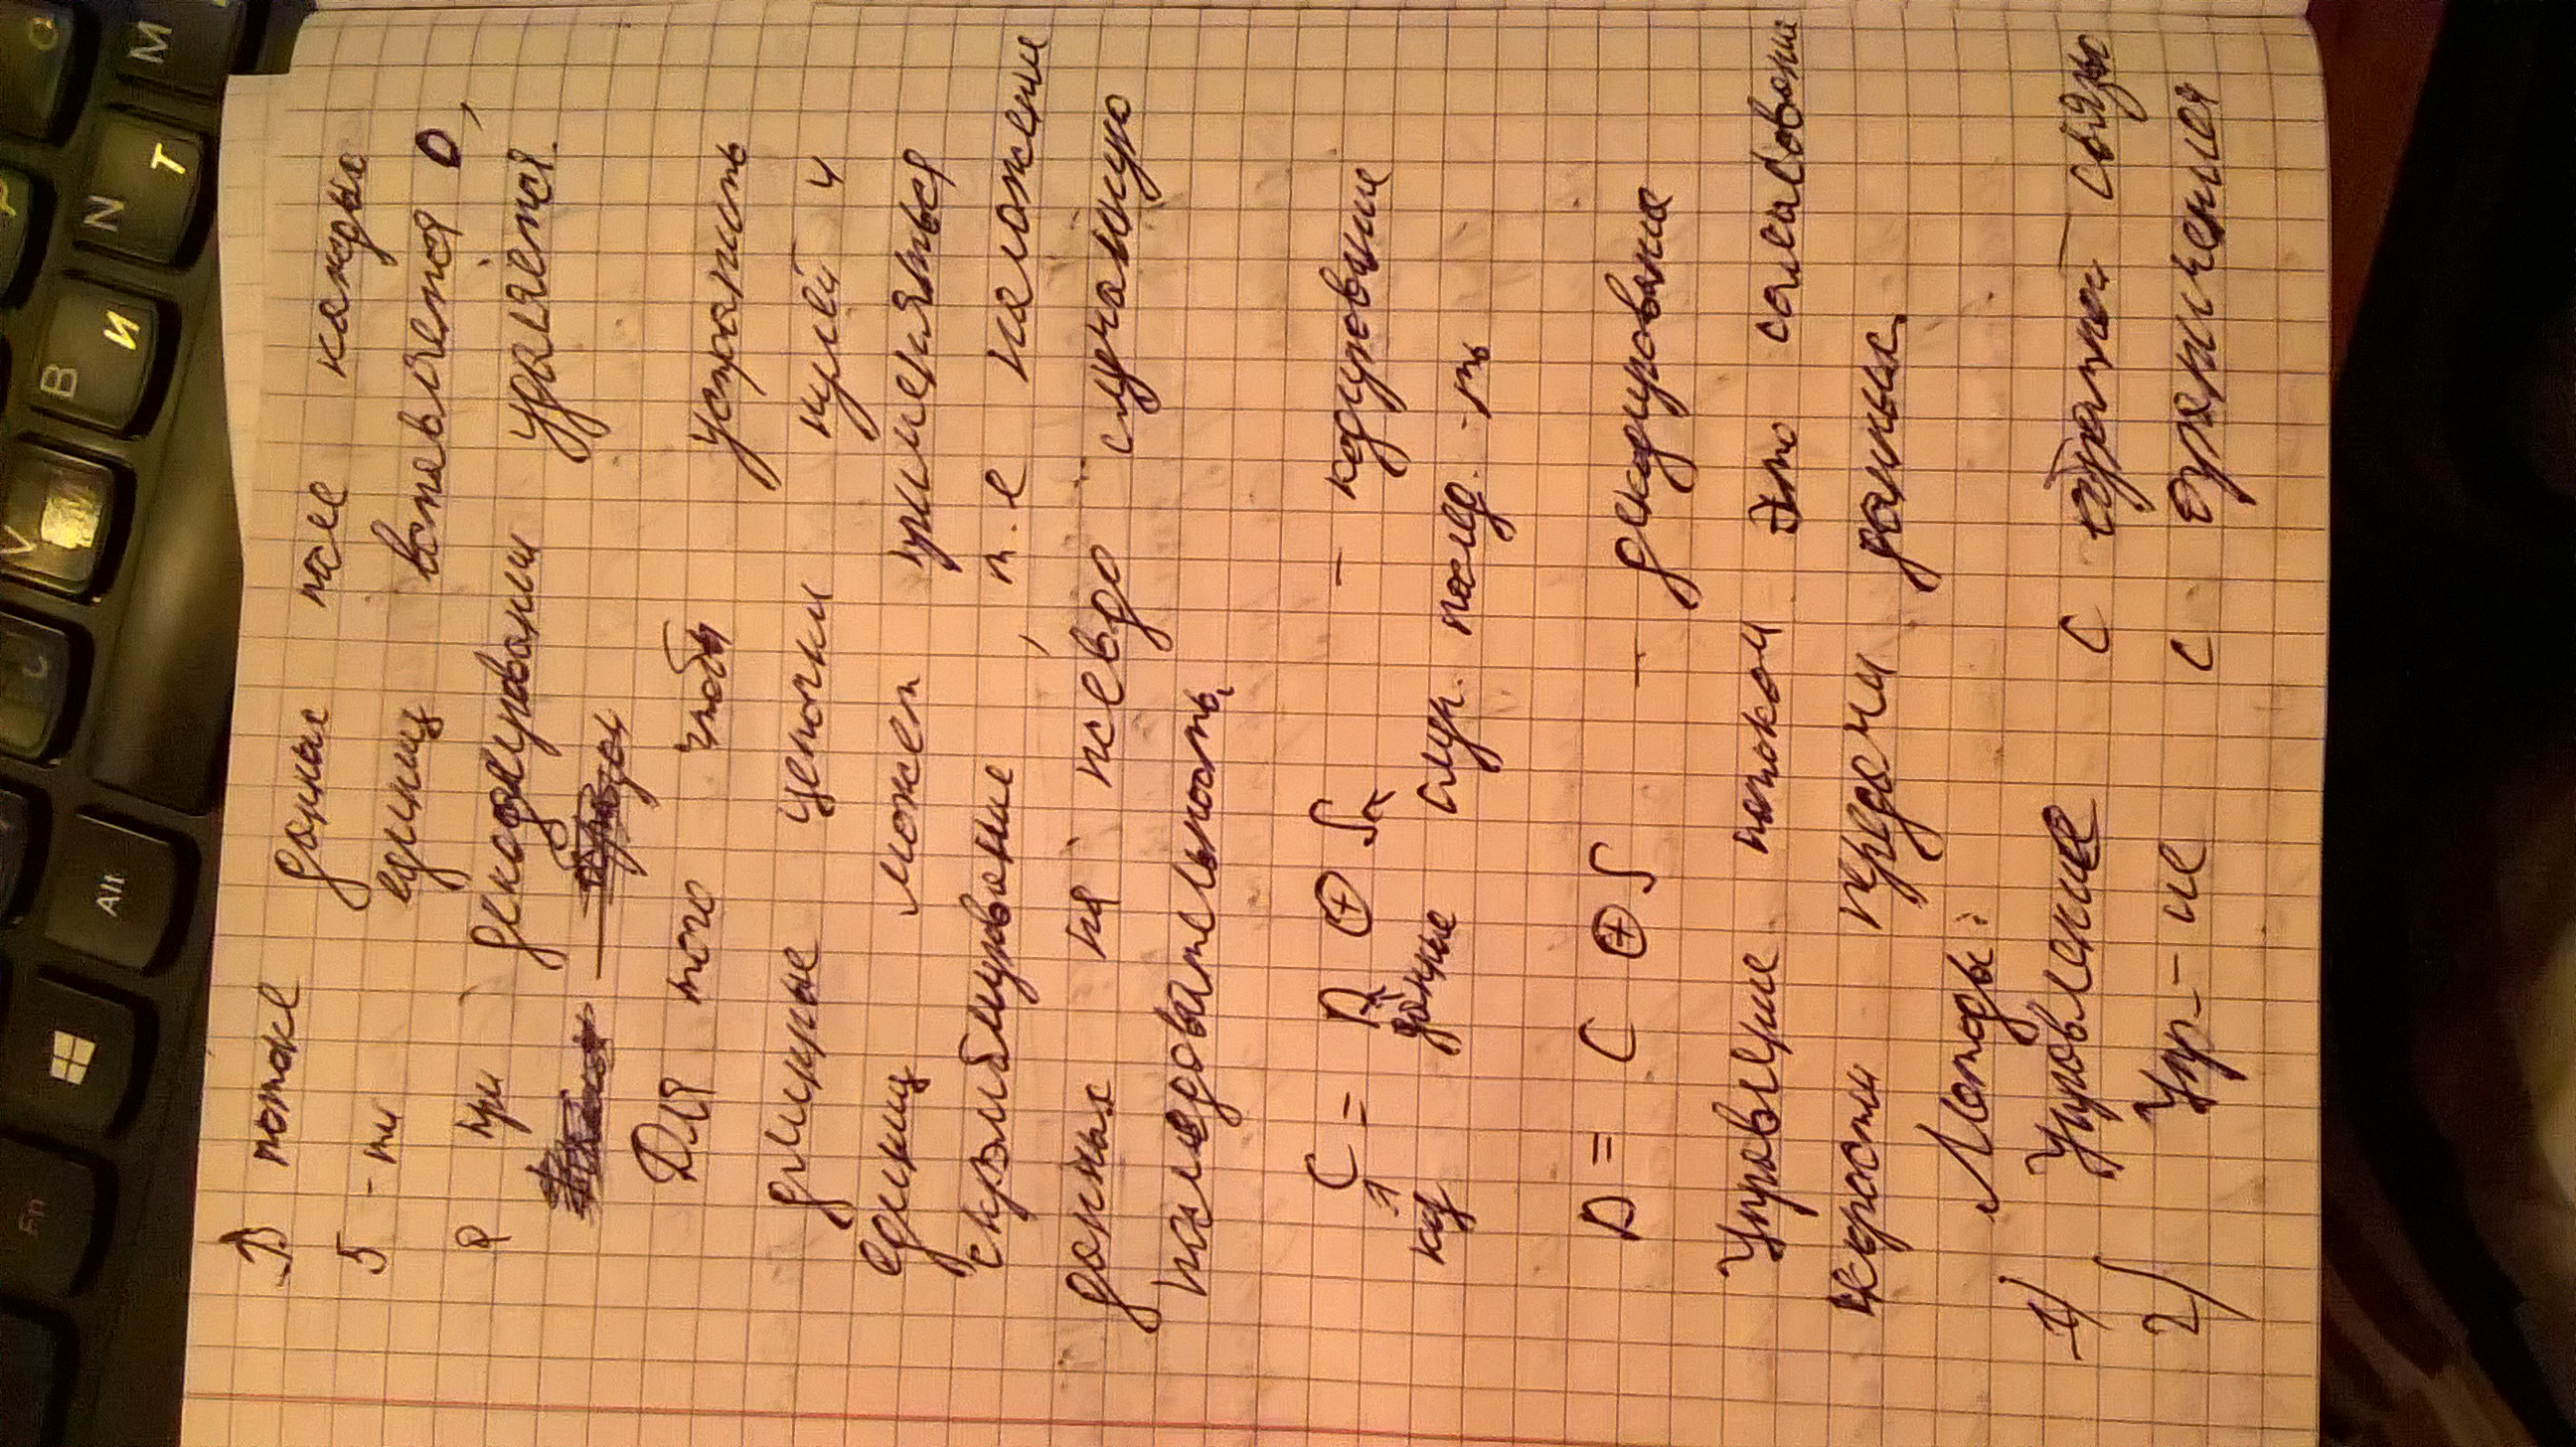 Fn
Alt
V
B
И
N
Т
M
В потоке данных после каждых
5 -ти единиц вставляется 0,
а при декодировании удаляется.
Для того чтобы устранить
длинные цепочки нулей и
единиц может применяться
скрэмблирование, т.е наложение
данных на псевдо случайную
последовательность.
C = D ⊕ S - кодирование
код данные случ. послед. -ть
D = C ⊕ S - декодирование
Управление потоком это согласование
скорости передачи данных.
Методы:
1) Управление с обратной связью
2) Упр-ие с ограничения